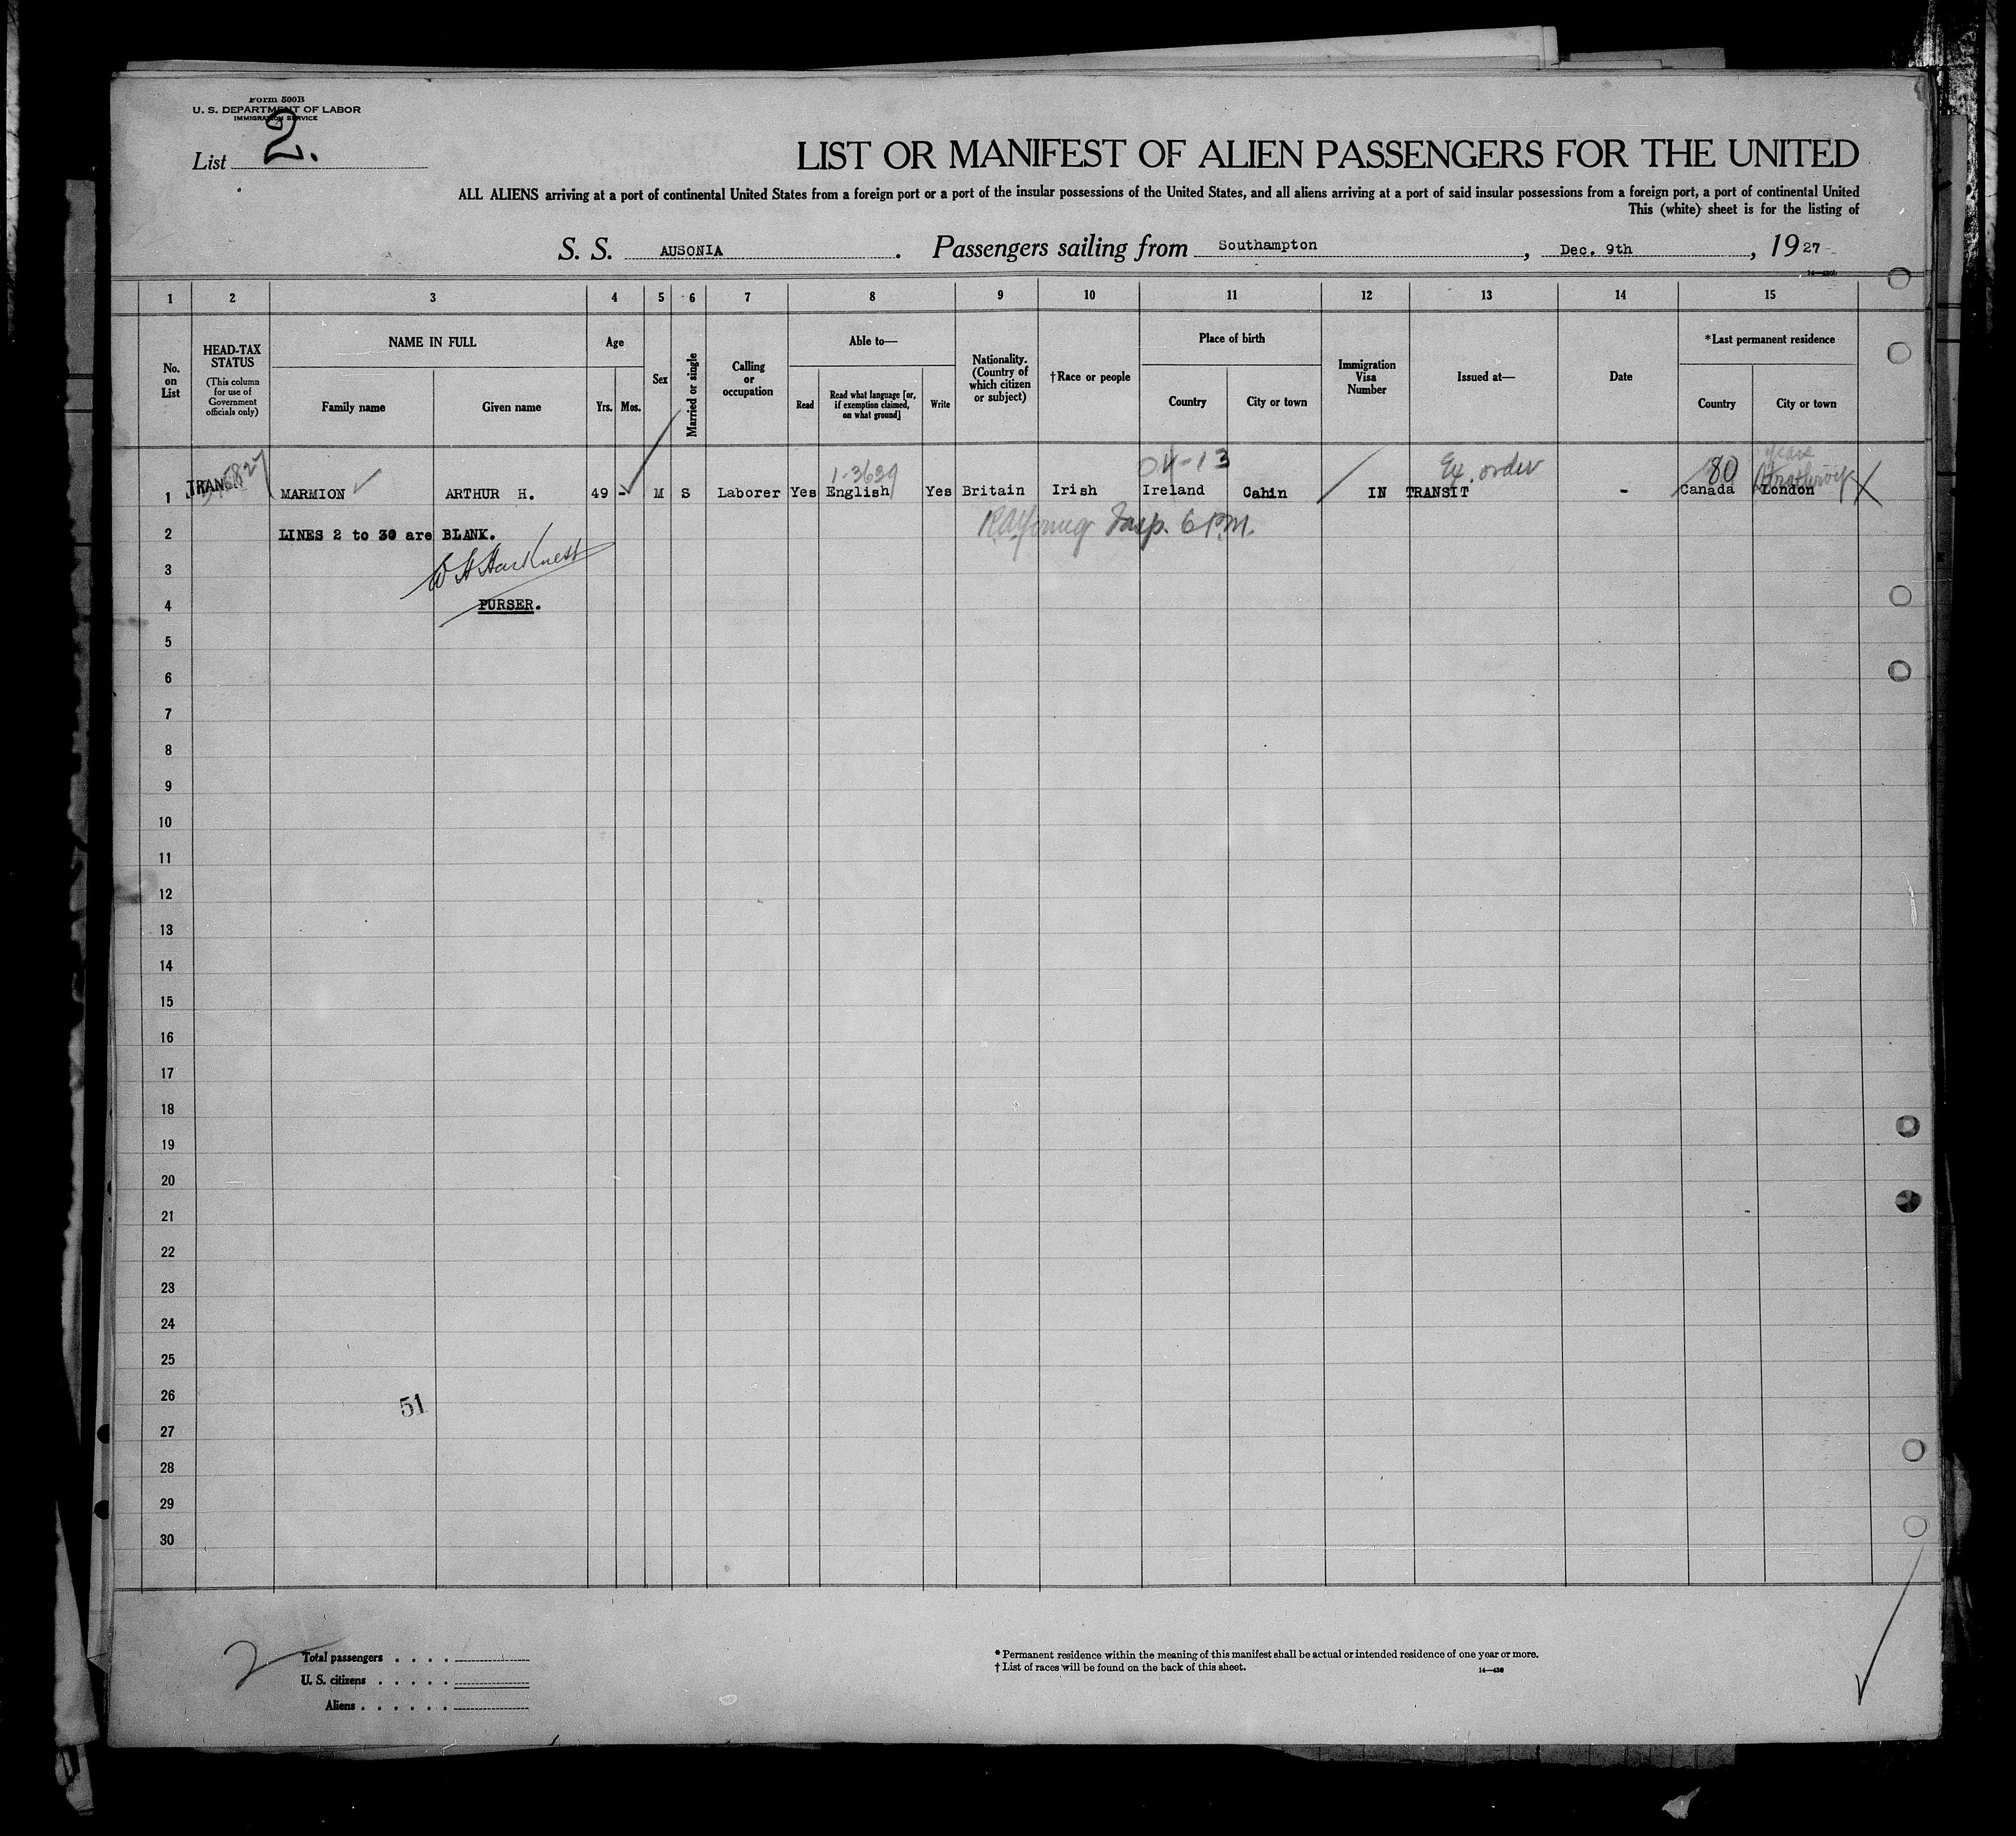 Form 500B
U. S. DEPARTMENT OF LABOR
IMMIGRATION SERVICE
List 2.
LIST OR MANIFEST OF ALIEN PASSENGERS FOR THE UNITED
ALL ALIENS arriving at a port of continental United States from a foreign port or a port of the insular possessions of the United States, and all aliens arriving at a port of said insular possessions from a foreign port, a port of continental United
This (white) sheet is for the listing of
S. S. AUSONIA. Passengers sailing from Southampton, Dec. 9th, 1927
1 2 3 4 5 6 7 8 9 10 11 12 13 14 15
No. on List
HEAD-TAX STATUS (This column for use of Government officials only)
NAME IN FULL
Family name Given name
Age
Yrs. Mos.
Sex
Married or single
Calling or occupation
Able to—
Read Read what language [or, if exemption claimed, on what ground] Write
Nationality. (Country of which citizen or subject)
†Race or people
Place of birth
Country City or town
Immigration Visa Number
Issued at—
Date
*Last permanent residence
Country City or town
1-3639 04-13 Ex. order 80
1 TRAN. MARMION ARTHUR H. 49 - M S Laborer Yes English Yes Britain Irish Ireland Cahin IN TRANSIT - Canada London
2 LINES 2 to 30 are BLANK. Insp. 6 P.M.
W H Harkness
3
4 PURSER.
5
6
7
8
9
10
11
12
13
14
15
16
17
18
19
20
21
22
23
24
25
26
51
27
28
29
30
2
Total passengers . . . .
U. S. citizens . . . . .
Aliens . . . . . .
* Permanent residence within the meaning of this manifest shall be actual or intended residence of one year or more.
† List of races will be found on the back of this sheet.